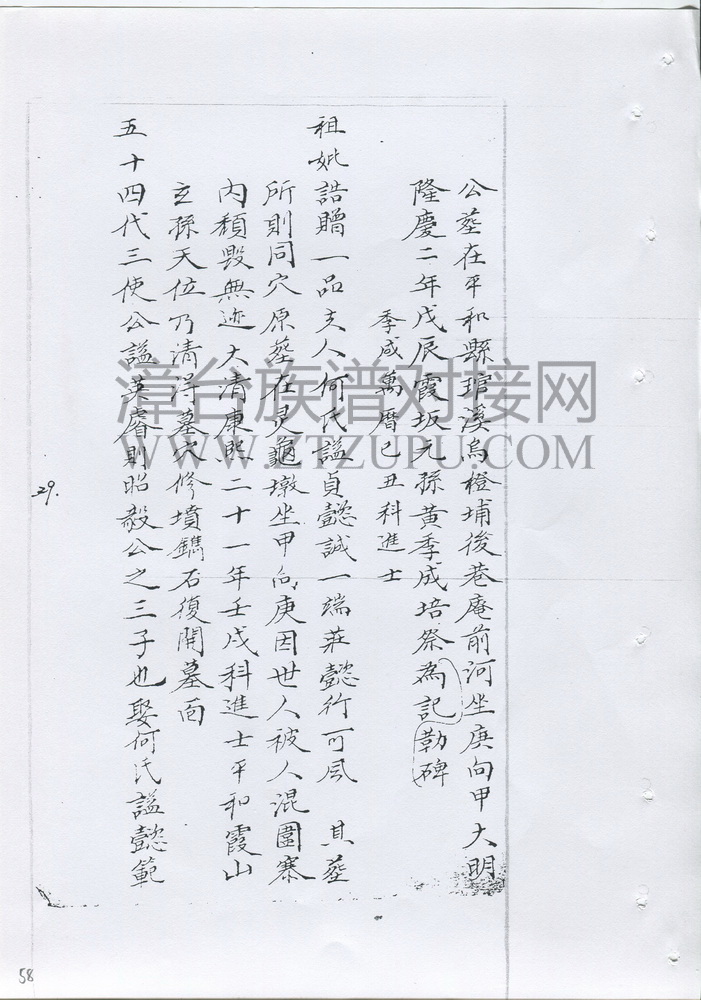 公墓在平和縣琯溪烏橙埔後巷庵前河坐庚向甲大明
隆慶二年戊辰霞坂元孫黃季成培祭為記勒碑
季成萬曆己丑科進士
祖妣誥贈一品夫人何氏謚貞懿誠一端莊懿行可風 其墓
所則同穴原墓在灵龜墩坐甲向庚因世人被人混圍寨
內頹毀無迹大清康熙二十一年壬戌科進士平和霞山
玄孫天位乃清淂墓穴修墳鐫石復開墓面
五十四代三使公謚英睿則昭毅公之三子也娶何氏謚懿範
漳台族谱对接网
WWW.ZTZUPU.COM
29.
58